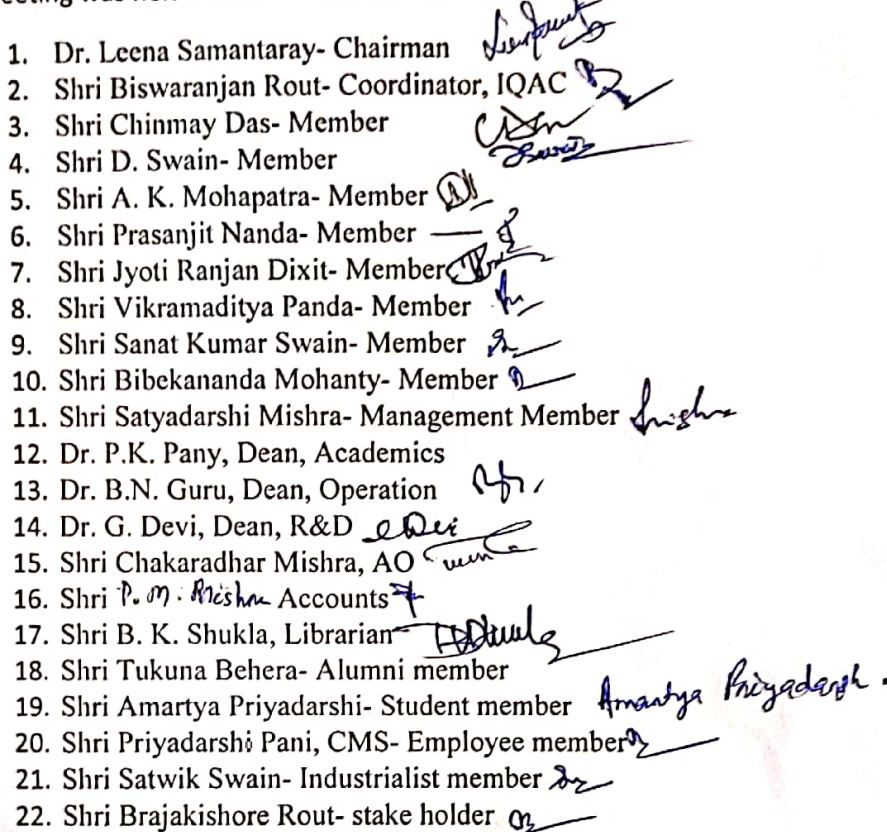 1. Dr. Leena Samantaray- Chairman
2. Shri Biswaranjan Rout- Coordinator, IQAC
3. Shri Chinmay Das- Member
4. Shri D. Swain- Member
5. Shri A. K. Mohapatra- Member
6. Shri Prasanjit Nanda- Member
7. Shri Jyoti Ranjan Dixit- Member
8. Shri Vikramaditya Panda- Member
9. Shri Sanat Kumar Swain- Member
10. Shri Bibekananda Mohanty- Member
11. Shri Satyadarshi Mishra- Management Member
12. Dr. P.K. Pany, Dean, Academics
13. Dr. B.N. Guru, Dean, Operation
14. Dr. G. Devi, Dean, R&D
15. Shri Chakaradhar Mishra, AO
16. Shri P. M. Mishra Accounts
17. Shri B. K. Shukla, Librarian
18. Shri Tukuna Behera- Alumni member
19. Shri Amartya Priyadarshi- Student member Amartya Priyadarsh.
20. Shri Priyadarshi Pani, CMS- Employee member
21. Shri Satwik Swain- Industrialist member
22. Shri Brajakishore Rout- stake holder